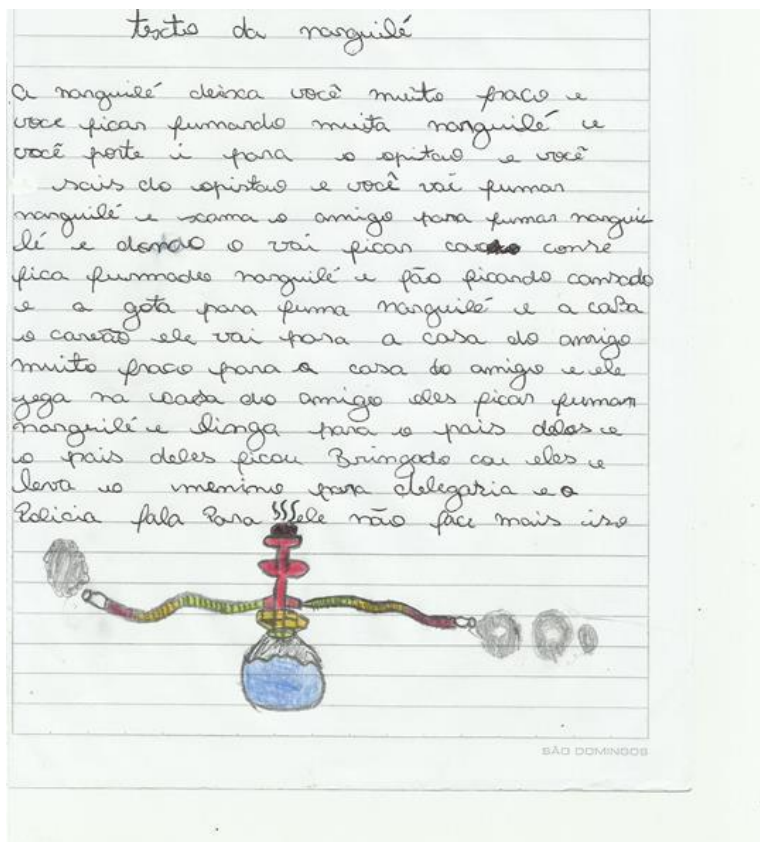 texto da narguilé
a narguilé deixa você muito fraco e
voce ficar fumando muita narguilé e
você porte i para o opitao e você
sais do opistao e você vai fumar
narguilé e xama o amigo para fumar nargui
lé e dondo o vai ficar conse
fica fummadeo narguilé e fão ficando cansado
e a gota para fuma narguilé e a caBa
o carvão ele vai para a casa do amigo
muito fraco para a casa do amigo e ele
jega na casa do amigo eles ficar fumam
narguilé e linga para o pais delos e
o pais deles ficou Bringado cou eles e
leva o menimo para delegaria e a
Policia fala Para ele não face mais iso
SÃO DOMINGOS